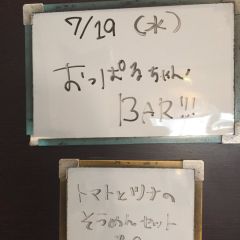 7/19 (水)
おっぱるちゃん!
BAR!!!
トマトとツナの
そうめんセット